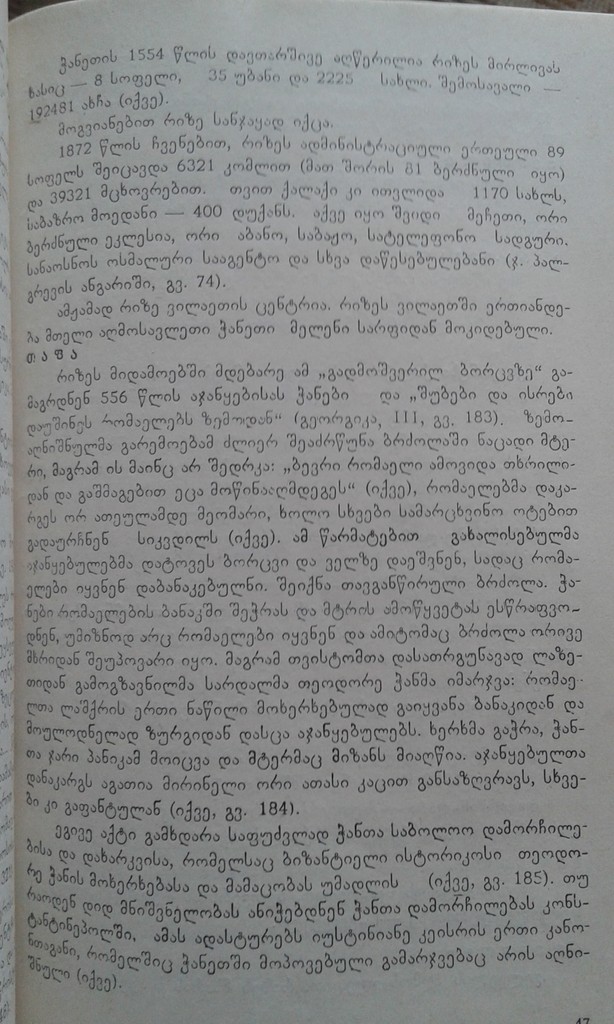 ჭანეთის 1554 წლის დავთარშივე აღწერილია რიზეს მირლივას
ხასიც — 8 სოფელი, 35 უბანი და 2225 სახლი. შემოსავალი —
192481 ახჩა (იქვე).
მოგვიანებით რიზე სანჯაყად იქცა.
1872 წლის ჩვენებით, რიზეს ადმინისტრაციული ერთეული 89
სოფელს შეიცავდა 6321 კომლით (მათ შორის 81 ბერძნული იყო)
და 39321 მცხოვრებით. თვით ქალაქი კი ითვლიდა 1170 სახლს,
საბაზრო მოედანი — 400 დუქანს. აქვე იყო შვიდი მეჩეთი, ორი
ბერძნული ეკლესია, ორი აბანო, საბაჟო, სატელეფონო სადგური.
სანაოსნოს ოსმალური სააგენტო და სხვა დაწესებულებანი (ჯ. პალ-
გრევის ანგარიში, გვ. 74).
ამჟამად რიზე ვილაეთის ცენტრია. რიზეს ვილაეთში ერთიანდე-
ბა მთელი აღმოსავლეთი ჭანეთი მელენი სარფიდან მოკიდებული.
თაფა
რიზეს მიდამოებში მდებარე ამ „გადმოშვერილ ბორცვზე“ გა-
მაგრდნენ 556 წლის აჯანყებისას ჭანები და „შუბები და ისრები
დაუშინეს რომაელებს ზემოდან“ (გეორგიკა, III, გვ. 183). ზემო-
აღნიშნულმა გარემოებამ ძლიერ შეაძრწუნა ბრძოლაში ნაცადი მტე-
რი, მაგრამ ის მაინც არ შედრკა: „ბევრი რომაელი ამოვიდა თხრილი-
დან და გაშმაგებით ეცა მოწინააღმდეგეს“ (იქვე), რომაელებმა დაკა-
რგეს ორ ათეულამდე მეომარი, ხოლო სხვები სამარცხვინო ოტებით
გადაურჩნენ სიკვდილს (იქვე). ამ წარმატებით გახალისებულმა
აჯანყებულებმა დატოვეს ბორცვი და ველზე დაეშვნენ, სადაც რომა-
ელები იყვნენ დაბანაკებულნი. შეიქნა თავგანწირული ბრძოლა. ჭა-
ნები რომაელების ბანაკში შეჭრას და მტრის ამოწყვეტას ესწრაფვო-
დნენ, უმიზნოდ არც რომაელები იყვნენ და ამიტომაც ბრძოლა ორივე
მხრიდან შეუპოვარი იყო. მაგრამ თვისტომთა დასათრგუნავად ლაზე-
თიდან გამოგზავნილმა სარდალმა თეოდორე ჭანმა იმარჯვა: რომაე-
ლთა ლაშქრის ერთი ნაწილი მოხერხებულად გაიყვანა ბანაკიდან და
მოულოდნელად ზურგიდან დასცა აჯანყებულებს. ხერხმა გაჭრა, ჭან-
თა ჯარი პანიკამ მოიცვა და მტერმაც მიზანს მიაღწია. აჯანყებულთა
დანაკარგს აგათია მირინელი ორი ათასი კაცით განსაზღვრავს, სხვე-
ბი კი გაფანტულან (იქვე, გვ. 184).
ეგივე აქტი გამხდარა საფუძვლად ჭანთა საბოლოო დამორჩილე-
ბისა და დახარკვისა, რომელსაც ბიზანტიელი ისტორიკოსი თეოდო-
რე ჭანის მოხერხებასა და მამაცობას უმადლის (იქვე, გვ. 185). თუ
რაოდენ დიდ მნიშვნელობას ანიჭებდნენ ჭანთა დამორჩილებას კონს-
ტანტინეპოლში, ამას ადასტურებს იუსტინიანე კეისრის ერთი კანო-
ნთაგანი, რომელშიც ჭანეთში მოპოვებული გამარჯვებაც არის აღნი-
შნული (იქვე).
47